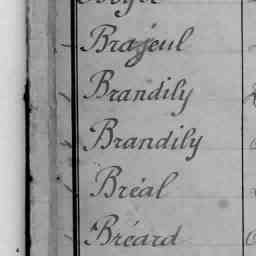 Brajeul
Brandily
Brandily
Bréal
Bréard